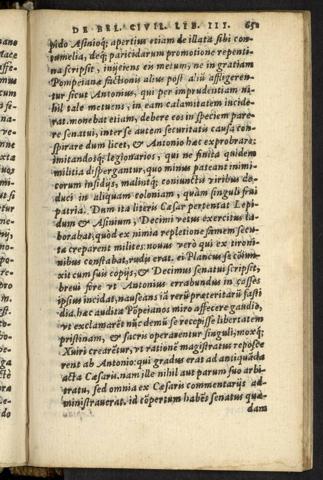 DE BEL. CIVIL. LIB. III. 650
pido Asinioq; apertius etiam de illata sibi con-
tumelia, deq; paricidarum promotione repenti-
na scripsit, inijciens en metum, ne in gratiam
Pompeianæ factionis alius post aliũ affligeren-
tur sicut Antonius, qui per imprudentiam ni-
hil tale metuens, in eam calamitatem incide-
rat. monebat etiam, debere eos in speciem pare-
re senatui, inter se autem securitatis causa con-
spirare dum licet, & Antonio hæc exprobrare:
imitandosq; legionarios, qui ne finita quidem
militia dispergantur, quo minus pateant inimi-
corum insidijs, malintq; coniunctis viribus de-
duci in aliquam coloniam, quàm singuli frui
patria. Dum ita literis Cæsar pertentat Lepi-
dum & Asinium, Decimi vetus exercitus la-
borabat, quòd ex nimia repletione famem secu-
ta creparent milites: nouus verò qui ex tironi-
nibus constabat, rudis erat. ei Plancus se cõiun-
xit cum suis copijs, & Decimus senatui scripsit,
breui fore vt Antonius errabundus in casses
ipsius incidat, nauseans iã rerũ præteritarũ fasti
dia. hac audita Põpeianos miro affecere gaudio,
vt exclamarẽt nũc demũ se recepisse libertatem
pristinam, & sacris operarentur singuli, moxq;
Xuiri crearẽtur, vt rationẽ magistratus reposce
rent ab Antonio: qui gradus erat ad antiquãda
acta Cæsaris. nam ille nihil aut parum suo arbi
tratu, sed omnia ex Cæsaris commentarijs ad-
ministrauerat. id cõpertum habẽs senatus quæ-
dam